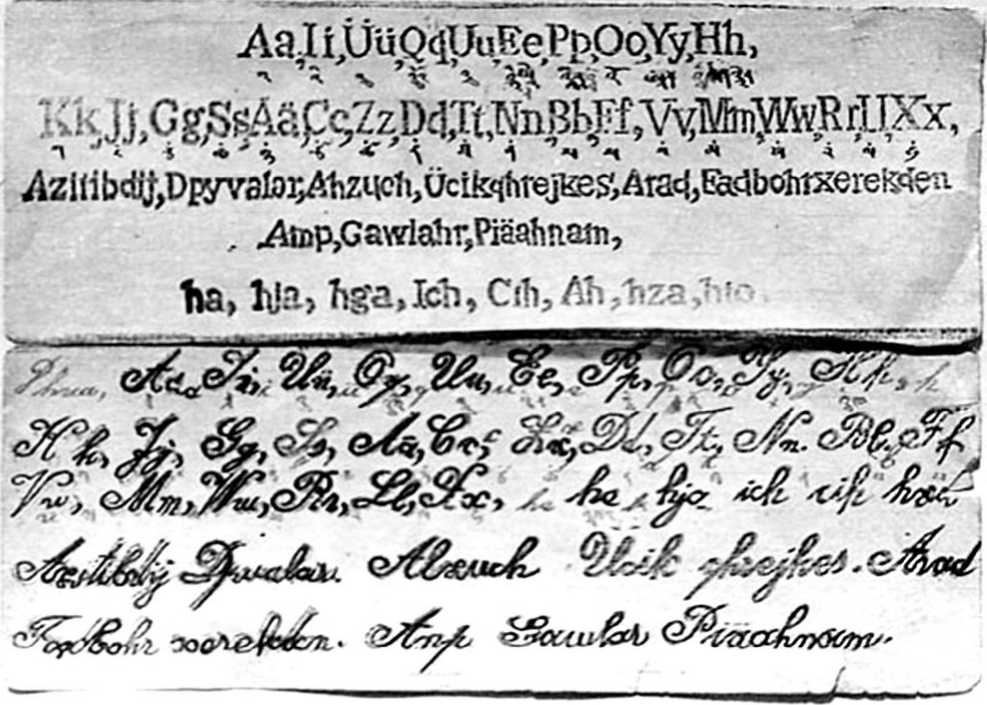 Aa, Ii, Üü, Qq, Uu, Ee, Pp, Oo, Yy, Hh,
Kk, Jj, Gg, Ss, Ää, Cc, Zz, Dd, Tt, Nn, Bb, Ff, Vv, Mm, Ww, Rr, Ll, Xx,
Azitibdij, Dpyvalor, Ahzuch, Ücikqhrejkes, Arad, Eadbohrxerekden
Amp, Gawlahr, Piäahnam,
ha, hja, hga, Ich, Cih, Ah, hza, hio.
Aa, Ii, Üü, Qq, Uu, Ee, Pp, Oo, Yy, Hh,
Kk, Jj, Gg, Ss, Ää, Cc, Zz, Dd, Tt, Nn. Bb, Ff
Vv, Mm, Ww, Rr, Ll, Xx, ha hja ich cih
Arad
xerekden. Amp Gawlar Piäahnam.